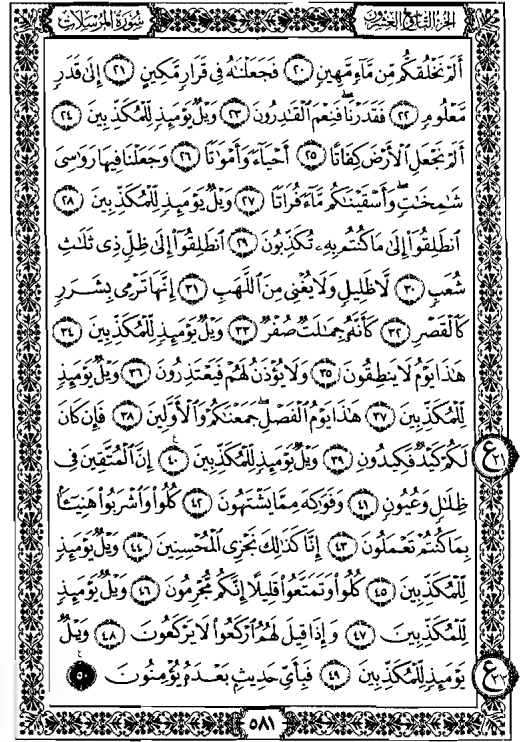 سُورَةُ المُرْسَلَات
الجزء التاسع والعشرون
أَلَمْ نَخْلُقكُّم مِّن مَّآءٍ مَّهِينٍ ٢٠ فَجَعَلْنَٰهُ فِى قَرَارٍ مَّكِينٍ ٢١ إِلَىٰ قَدَرٍ
مَّعْلُومٍ ٢٢ فَقَدَرْنَا فَنِعْمَ ٱلْقَٰدِرُونَ ٢٣ وَيْلٌ يَوْمَئِذٍ لِّلْمُكَذِّبِينَ ٢٤
أَلَمْ نَجْعَلِ ٱلْأَرْضَ كِفَاتًا ٢٥ أَحْيَآءً وَأَمْوَٰتًا ٢٦ وَجَعَلْنَا فِيهَا رَوَٰسِىَ
شَٰمِخَٰتٍ وَأَسْقَيْنَٰكُم مَّآءً فُرَاتًا ٢٧ وَيْلٌ يَوْمَئِذٍ لِّلْمُكَذِّبِينَ ٢٨
ٱنطَلِقُوٓا۟ إِلَىٰ مَا كُنتُم بِهِۦ تُكَذِّبُونَ ٢٩ ٱنطَلِقُوٓا۟ إِلَىٰ ظِلٍّ ذِى ثَلَٰثِ
شُعَبٍ ٣٠ لَّا ظَلِيلٍ وَلَا يُغْنِى مِنَ ٱللَّهَبِ ٣١ إِنَّهَا تَرْمِى بِشَرَرٍ
كَٱلْقَصْرِ ٣٢ كَأَنَّهُۥ جِمَٰلَتٌ صُفْرٌ ٣٣ وَيْلٌ يَوْمَئِذٍ لِّلْمُكَذِّبِينَ ٣٤
هَٰذَا يَوْمُ لَا يَنطِقُونَ ٣٥ وَلَا يُؤْذَنُ لَهُمْ فَيَعْتَذِرُونَ ٣٦ وَيْلٌ يَوْمَئِذٍ
لِّلْمُكَذِّبِينَ ٣٧ هَٰذَا يَوْمُ ٱلْفَصْلِ جَمَعْنَٰكُمْ وَٱلْأَوَّلِينَ ٣٨ فَإِن كَانَ
لَكُمْ كَيْدٌ فَكِيدُونِ ٣٩ وَيْلٌ يَوْمَئِذٍ لِّلْمُكَذِّبِينَ ٤٠ إِنَّ ٱلْمُتَّقِينَ فِى
ظِلَٰلٍ وَعُيُونٍ ٤١ وَفَوَٰكِهَ مِمَّا يَشْتَهُونَ ٤٢ كُلُوا۟ وَٱشْرَبُوا۟ هَنِيٓـًٔا
بِمَا كُنتُمْ تَعْمَلُونَ ٤٣ إِنَّا كَذَٰلِكَ نَجْزِى ٱلْمُحْسِنِينَ ٤٤ وَيْلٌ يَوْمَئِذٍ
لِّلْمُكَذِّبِينَ ٤٥ كُلُوا۟ وَتَمَتَّعُوا۟ قَلِيلًا إِنَّكُم مُّجْرِمُونَ ٤٦ وَيْلٌ يَوْمَئِذٍ
لِّلْمُكَذِّبِينَ ٤٧ وَإِذَا قِيلَ لَهُمُ ٱرْكَعُوا۟ لَا يَرْكَعُونَ ٤٨ وَيْلٌ
يَوْمَئِذٍ لِّلْمُكَذِّبِينَ ٤٩ فَبِأَىِّ حَدِيثٍۭ بَعْدَهُۥ يُؤْمِنُونَ ٥٠
٥٨١